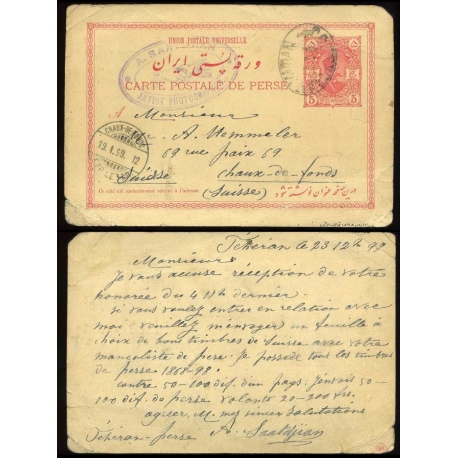 UNION POSTALE UNIVERSELLE
ورقهٔ پستی ایران
CARTE POSTALE DE PERSE
5 5
ARTIST PHOTOGRA
A Monsieur
A. Wemmeler
69 rue paix 69
Chaux-de-fonds
Suisse (Suisse)
19.1.99. 12
Ce côté est exclusivement réservé à l'adresse.
Téhéran le 23 12bre 98
Monsieur
Je vous accuse réception de votre
honorée du 4 9bre dernier.
si vous voulez entrer en relation avec
moi veuillez m'envoyer un feuille à
choix de bons timbres de Suisse avec votre
mancoliste de perse. Je possede tous les timbres
de perse 1868-98.
contre 50-100 dif. d'un pays. j'envois 50-
100 dif. de perse valants 20-200 frs.
agréer, M. mes sincer salutations
Téhéran-perse A. Saatdjian